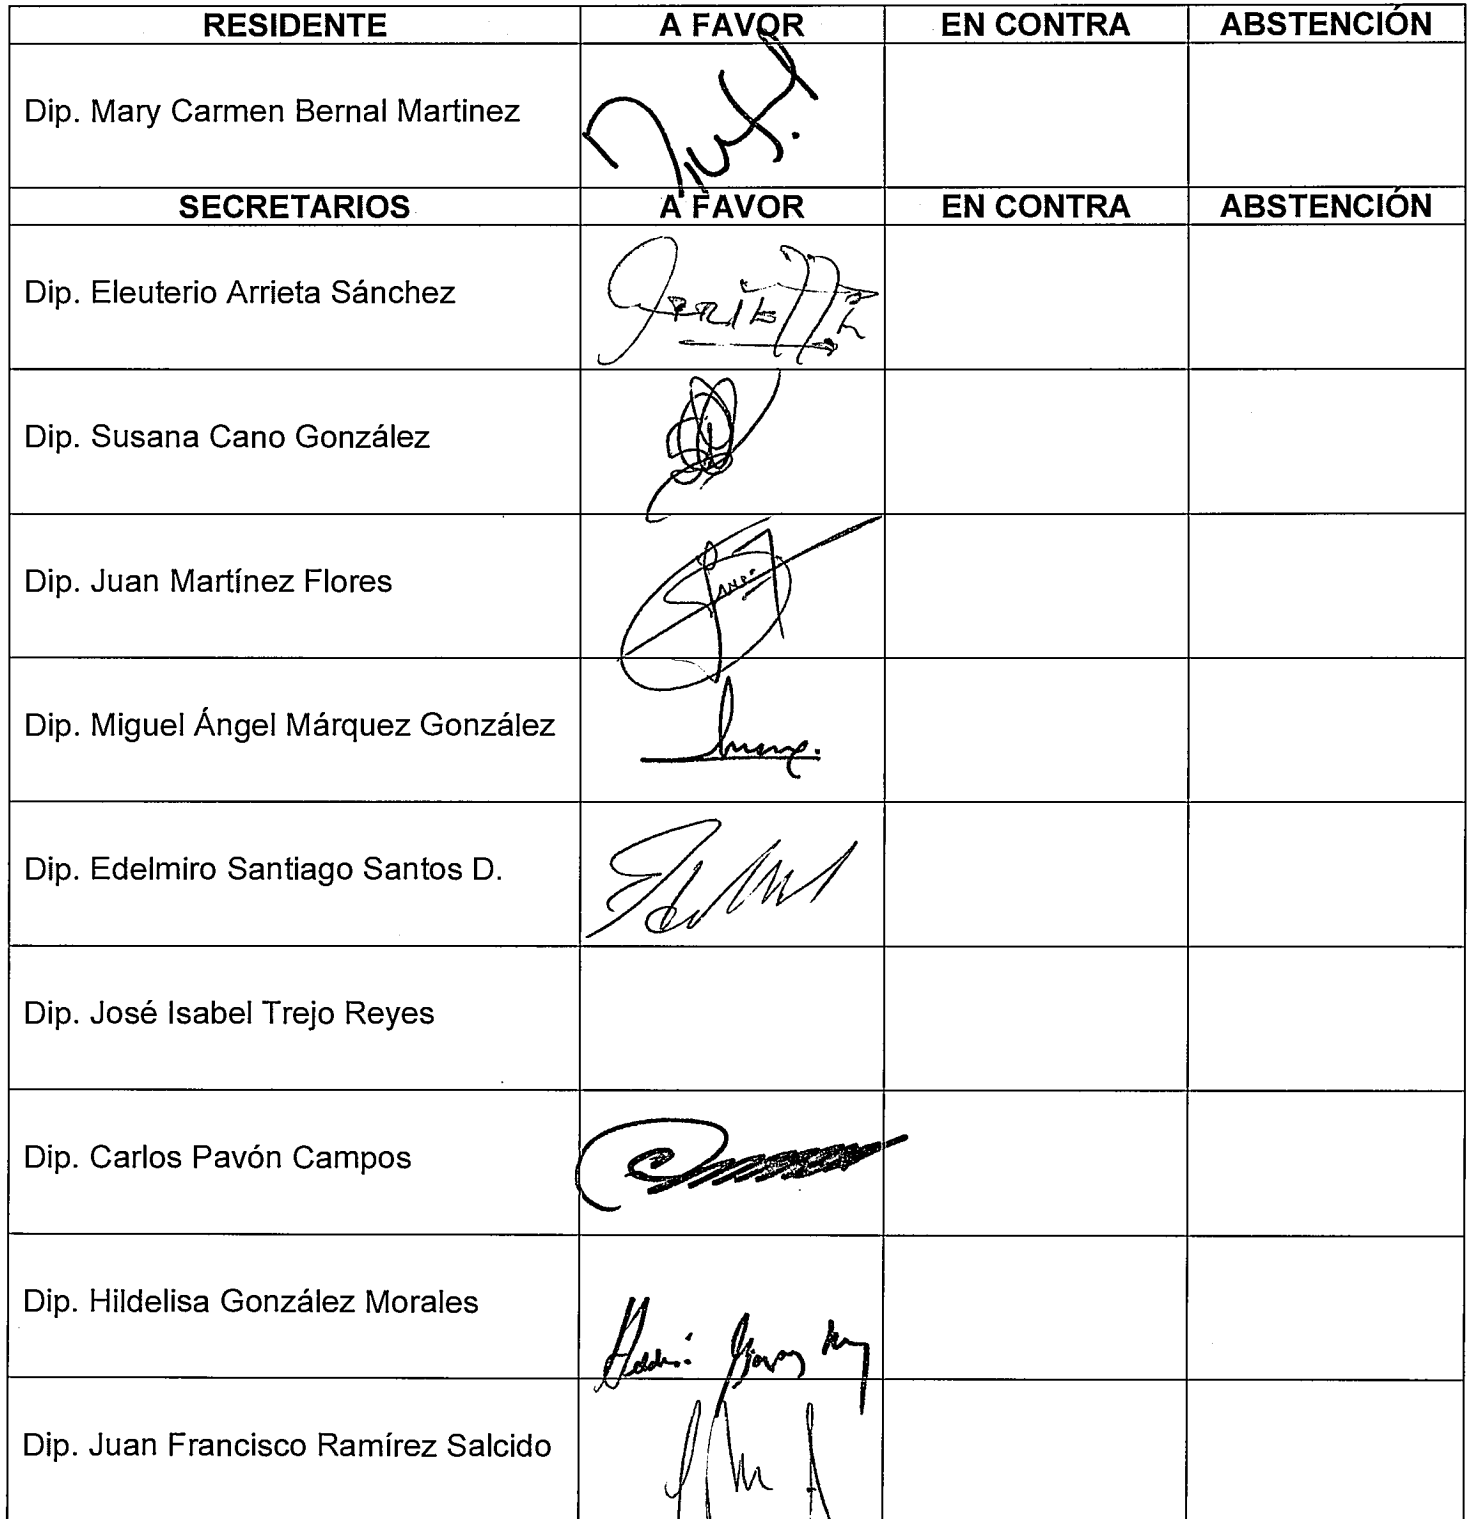 RESIDENTE A FAVOR EN CONTRA ABSTENCIÓN
Dip. Mary Carmen Bernal Martinez
SECRETARIOS A FAVOR EN CONTRA ABSTENCIÓN
Dip. Eleuterio Arrieta Sánchez
Dip. Susana Cano González
Dip. Juan Martínez Flores
Dip. Miguel Ángel Márquez González
Dip. Edelmiro Santiago Santos D.
Dip. José Isabel Trejo Reyes
Dip. Carlos Pavón Campos
Dip. Hildelisa González Morales
Dip. Juan Francisco Ramírez Salcido